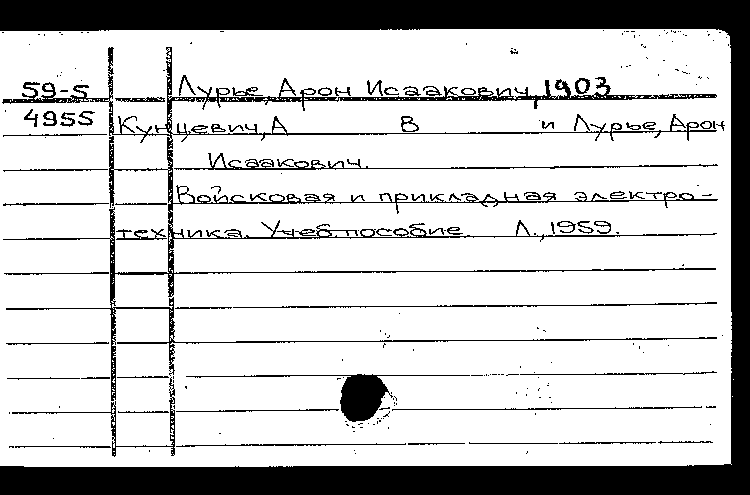 59-5 Лурье, Арон Исаакович, 1903
4955 Кунцевич, А В и Лурье, Арон
Исаакович.
Войсковая и прикладная электро-
техника. Учеб. пособие. Л., 1959.